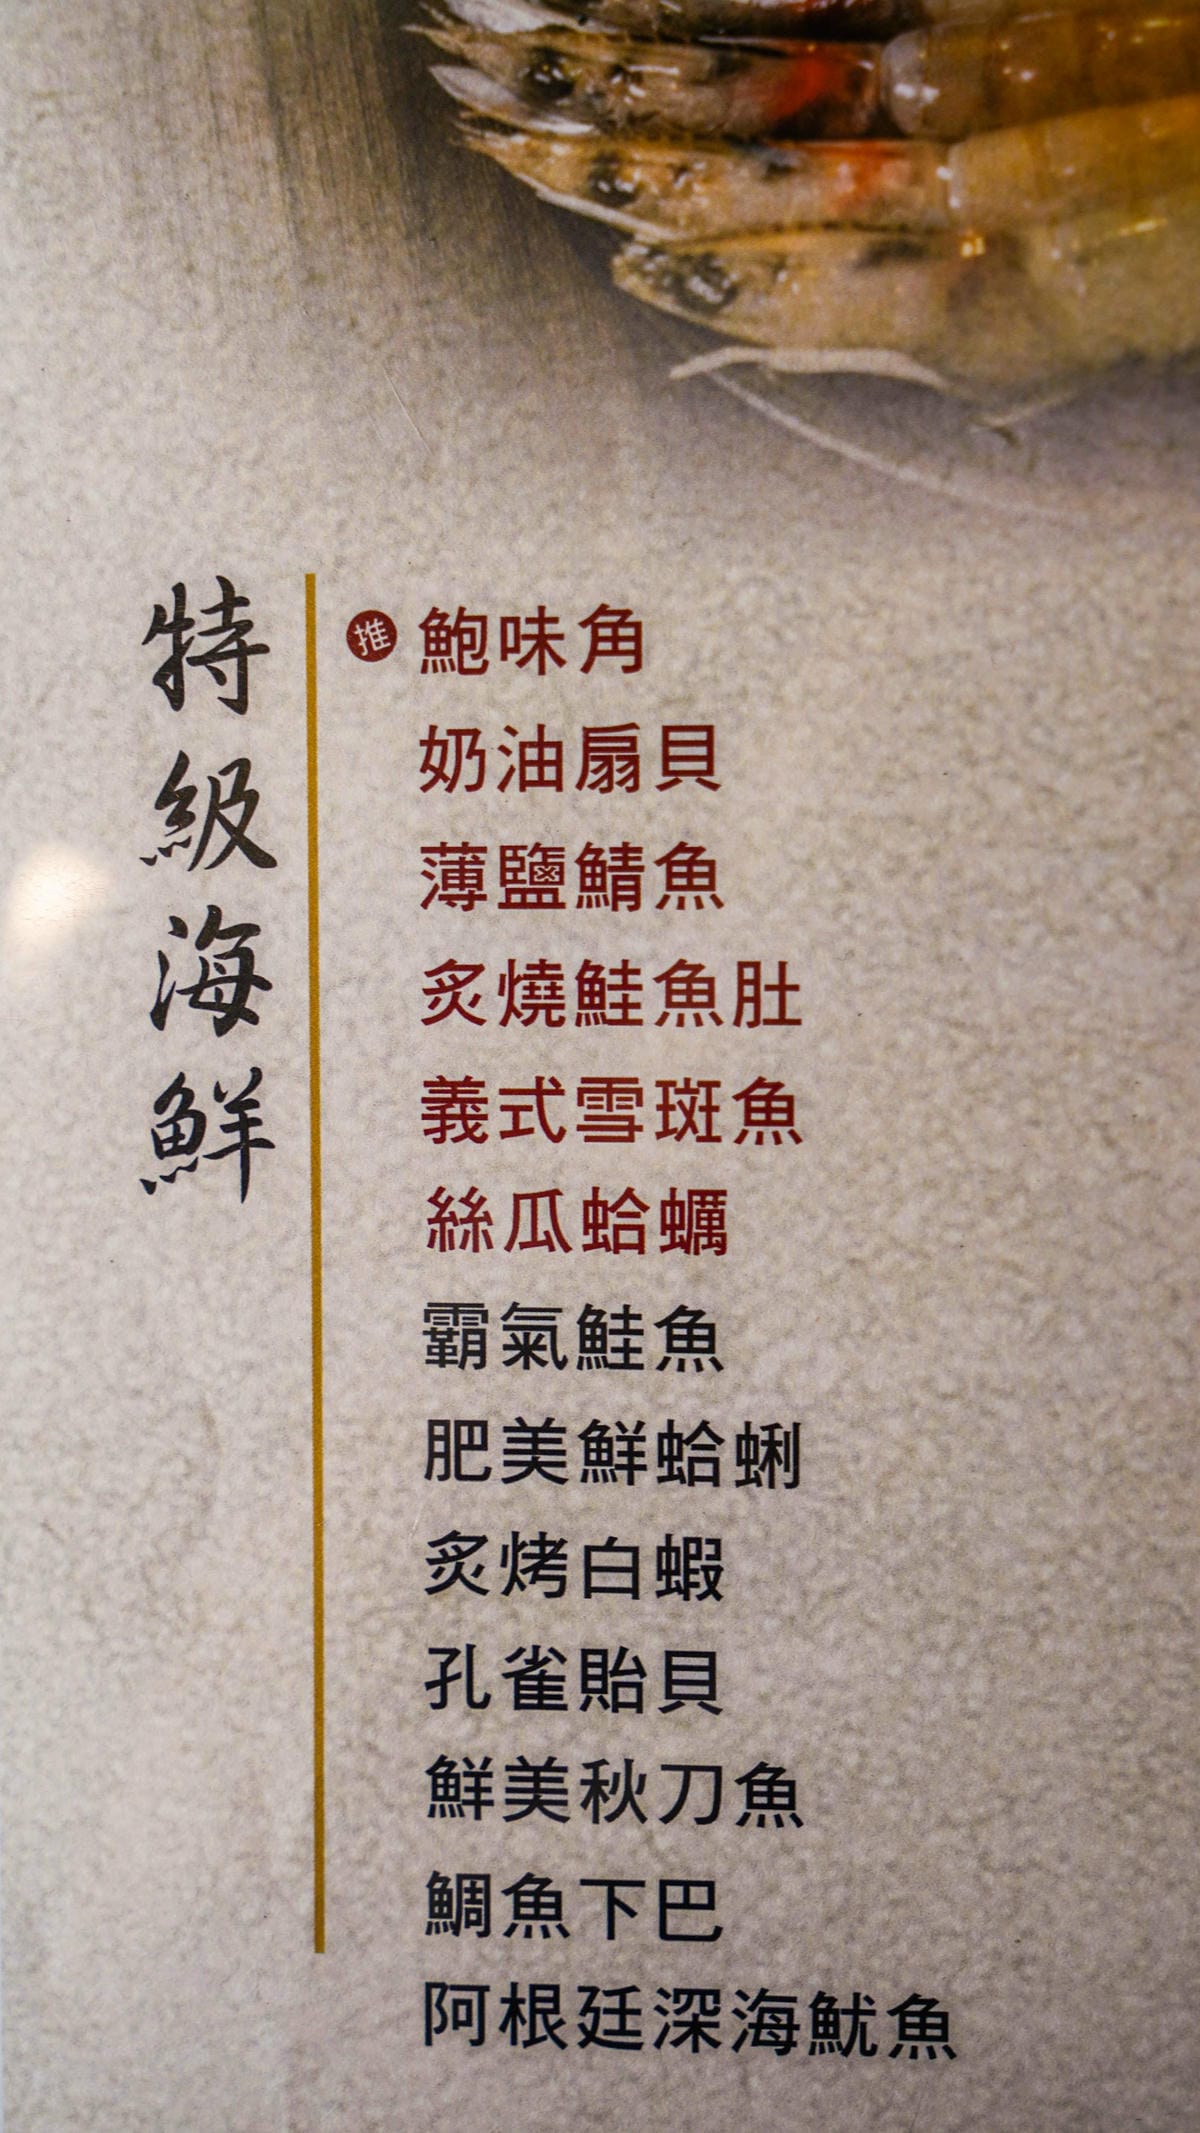 特級海鮮
推 鮑味角
奶油扇貝
薄鹽鯖魚
炙燒鮭魚肚
義式雪斑魚
絲瓜蛤蠣
霸氣鮭魚
肥美鮮蛤蜊
炙烤白蝦
孔雀貽貝
鮮美秋刀魚
鯛魚下巴
阿根廷深海魷魚